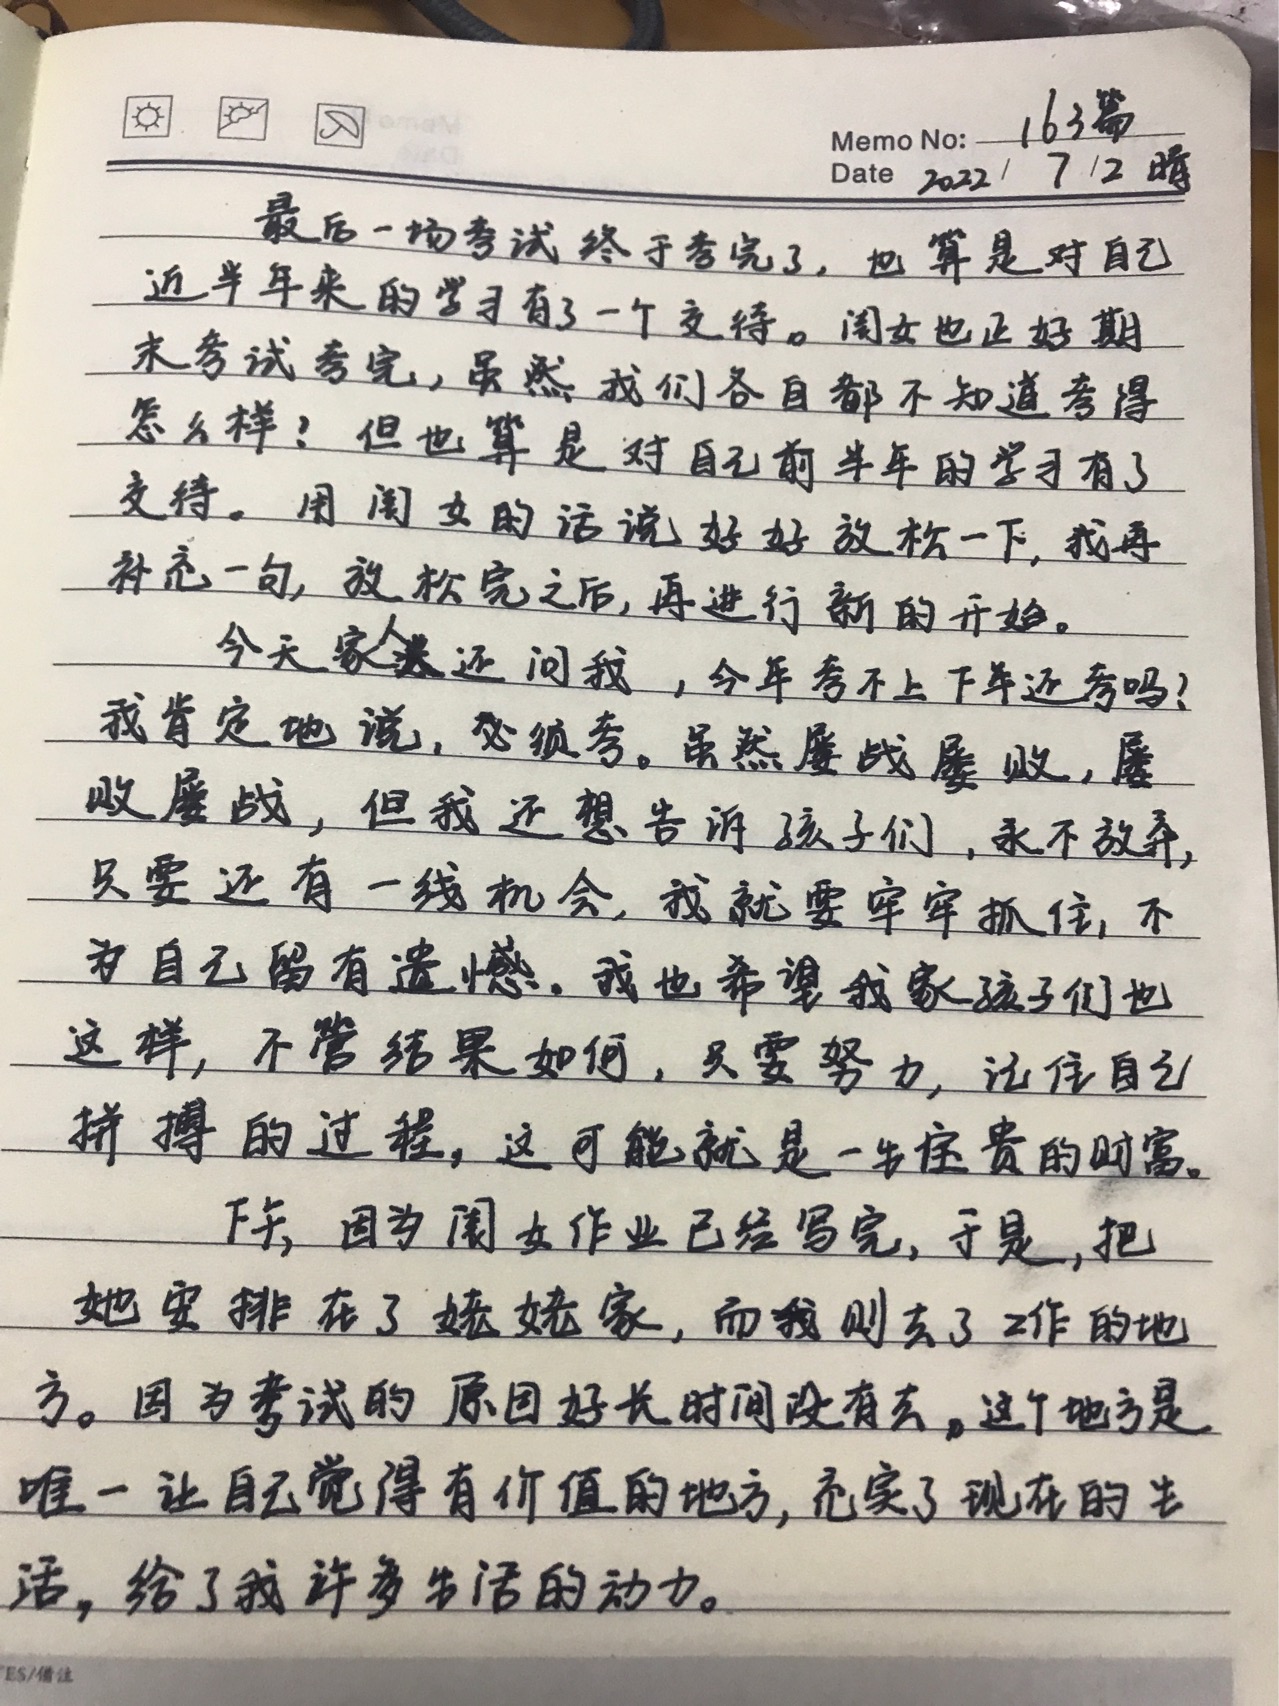 Memo No: 163篇
Date 2022/7/2 晴
最后一场考试终于考完了，也算是对自己
近半年来的学习有了一个交待。闺女也正好期
末考试考完，虽然我们各自都不知道考得
怎么样？但也算是对自己前半年的学习有了
交待。用闺女的话说好好放松一下，我再
补充一句，放松完之后，再进行新的开始。
今天家人还问我，今年考不上下年还考吗？
我肯定地说，必须考。虽然屡战屡败，屡
败屡战，但我还想告诉孩子们，永不放弃，
只要还有一线机会，我就要牢牢抓住，不
为自己留有遗憾。我也希望我家孩子们也
这样，不管结果如何，只要努力，记住自己
拼搏的过程，这可能就是一生宝贵的财富。
下午，因为闺女作业已经写完，于是，把
她安排在了姥姥家，而我则去了工作的地
方。因为考试的原因好长时间没有去。这个地方是
唯一让自己觉得有价值的地方，充实了现在的生
活，给了我许多生活的动力。
TES/备注